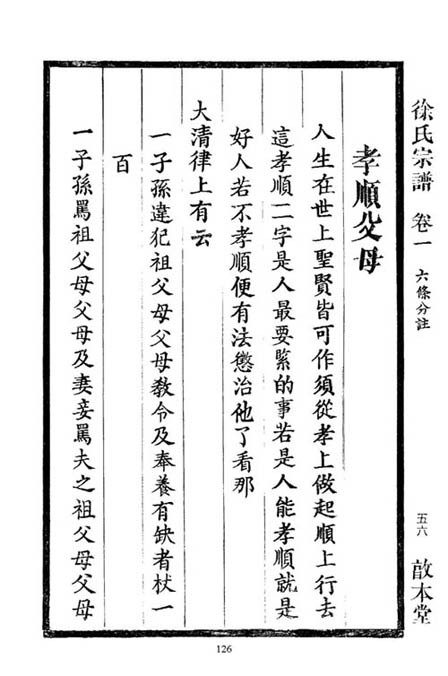 徐氏宗譜 卷一 六條分註 五六 敦本堂
孝順父母
人生在世上聖賢皆可作須從孝上做起順上行去
這孝順二字是人最要緊的事若是人能孝順就是
好人若不孝順便有法懲治他了看那
大清律上有云
一子孫違犯祖父母父母教令及奉養有缺者杖一
百
一子孫罵祖父母父母及妻妾罵夫之祖父母父母
126